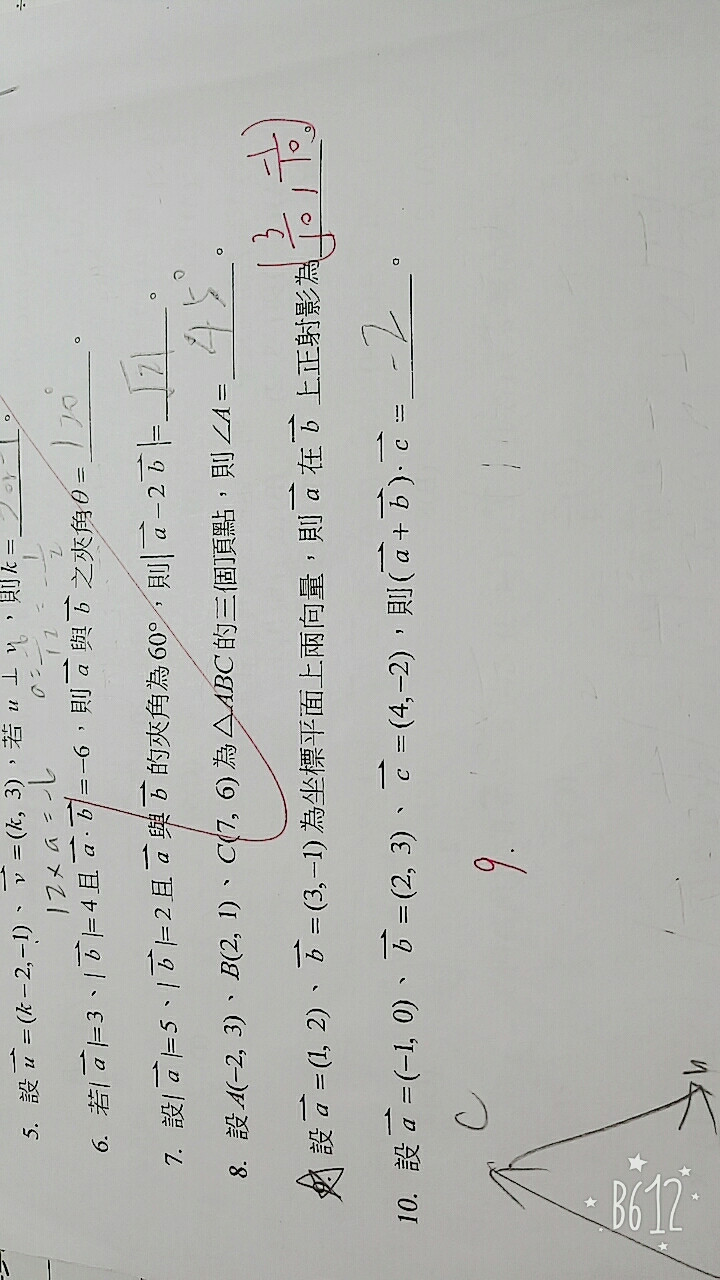 5. 設 u =(k−2,−1)、v =(k, 3)，若 u ⊥ v，則 k =
12×a=-6
6. 若| a |=3、| b |=4 且 a · b =−6，則 a 與 b 之夾角θ = 120°。
7. 設| a |=5、| b |=2 且 a 與 b 的夾角為60°，則| a −2 b |= √21。
8. 設 A(−2, 3)、B(2, 1)、C(7, 6) 為 △ABC 的三個頂點，則 ∠A = 45°。
9. 設 a =(1, 2)、b =(3,−1) 為坐標平面上兩向量，則 a 在 b 上正射影為 (3/10, -1/10)。
10. 設 a =(−1, 0)、b =(2, 3)、c =(4,−2)，則( a + b )· c = -2。
9.
C
B612